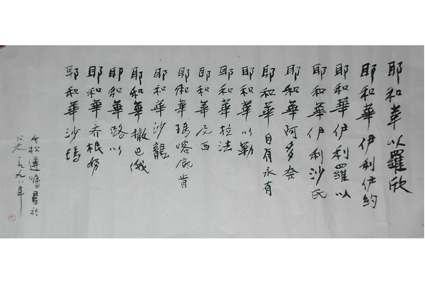 耶和華以羅欣
耶和華伊利伊約
耶和華伊利羅以
耶和華伊利沙
耶和華阿多奈
耶和華自有永有
耶和華以勒
耶和華拉法
耶和華尼西
耶和華瑪喀底肯
耶和華沙龍
耶和華撒巴俄
耶和華路以
耶和華齐根努
耶和華沙瑪
一九九八年